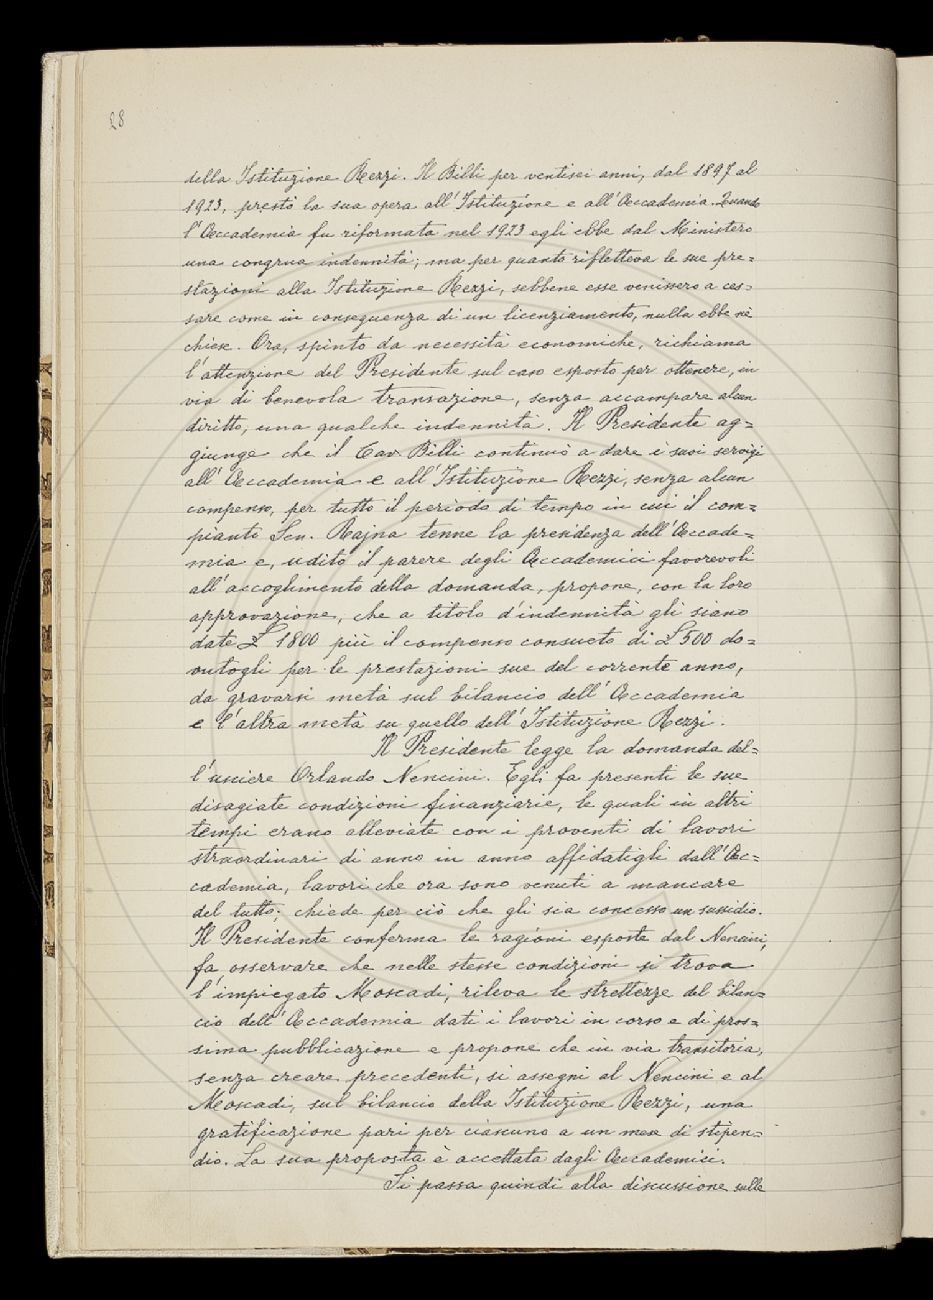 28
della Istituzione Rezzi. Il Billi per ventisei anni, dal 1897 al
1923, prestò la sua opera all'Istituzione e all'Accademia. Quando
l'Accademia fu riformata nel 1923 egli ebbe dal Ministero
una congrua indennità; ma per quanto rifletteva le sue pre=
stazioni alla Istituzione Rezzi, sebbene esse venissero a ces=
sare come in conseguenza di un licenziamento, nulla ebbe nè
chiese. Ora, spinto da necessità economiche, richiama
l'attenzione del Presidente sul caso esposto per ottenere, in
via di benevola transazione, senza accampare alcun
diritto, una qualche indennità. Il Presidente ag=
giunge che il Cav. Billi continuò a dare i suoi servigi
all'Accademia e all'Istituzione Rezzi, senza alcun
compenso, per tutto il periodo di tempo in cui il com=
pianto Sen. Rajna tenne la presidenza dell'Accade=
mia e, udito il parere degli Accademici favorevoli
all'accoglimento della domanda, propone, con la loro
approvazione, che a titolo d'indennità gli siano
date £ 1800 più il compenso consueto di £ 500 do=
vutogli per le prestazioni sue del corrente anno,
da gravarsi metà sul bilancio dell'Accademia
e l'altra metà su quello dell'Istituzione Rezzi.
Il Presidente legge la domanda del=
l'usciere Orlando Nencini. Egli fa presenti le sue
disagiate condizioni finanziarie, le quali in altri
tempi erano alleviate con i proventi di lavori
straordinari di anno in anno affidatigli dall'Ac=
cademia, lavori che ora sono venuti a mancare
del tutto; chiede per ciò che gli sia concesso un sussidio.
Il Presidente conferma le ragioni esposte dal Nencini,
fa osservare che nelle stesse condizioni si trova
l'impiegato Moscadi, rileva le strettezze del bilan=
cio dell'Accademia dati i lavori in corso e di pros=
sima pubblicazione e propone che in via transitoria,
senza creare precedenti, si assegni al Nencini e al
Moscadi, sul bilancio della Istituzione Rezzi, una
gratificazione pari per ciascuno a un mese di stipen=
dio. La sua proposta è accettata dagli Accademici.
Si passa quindi alla discussione sulle